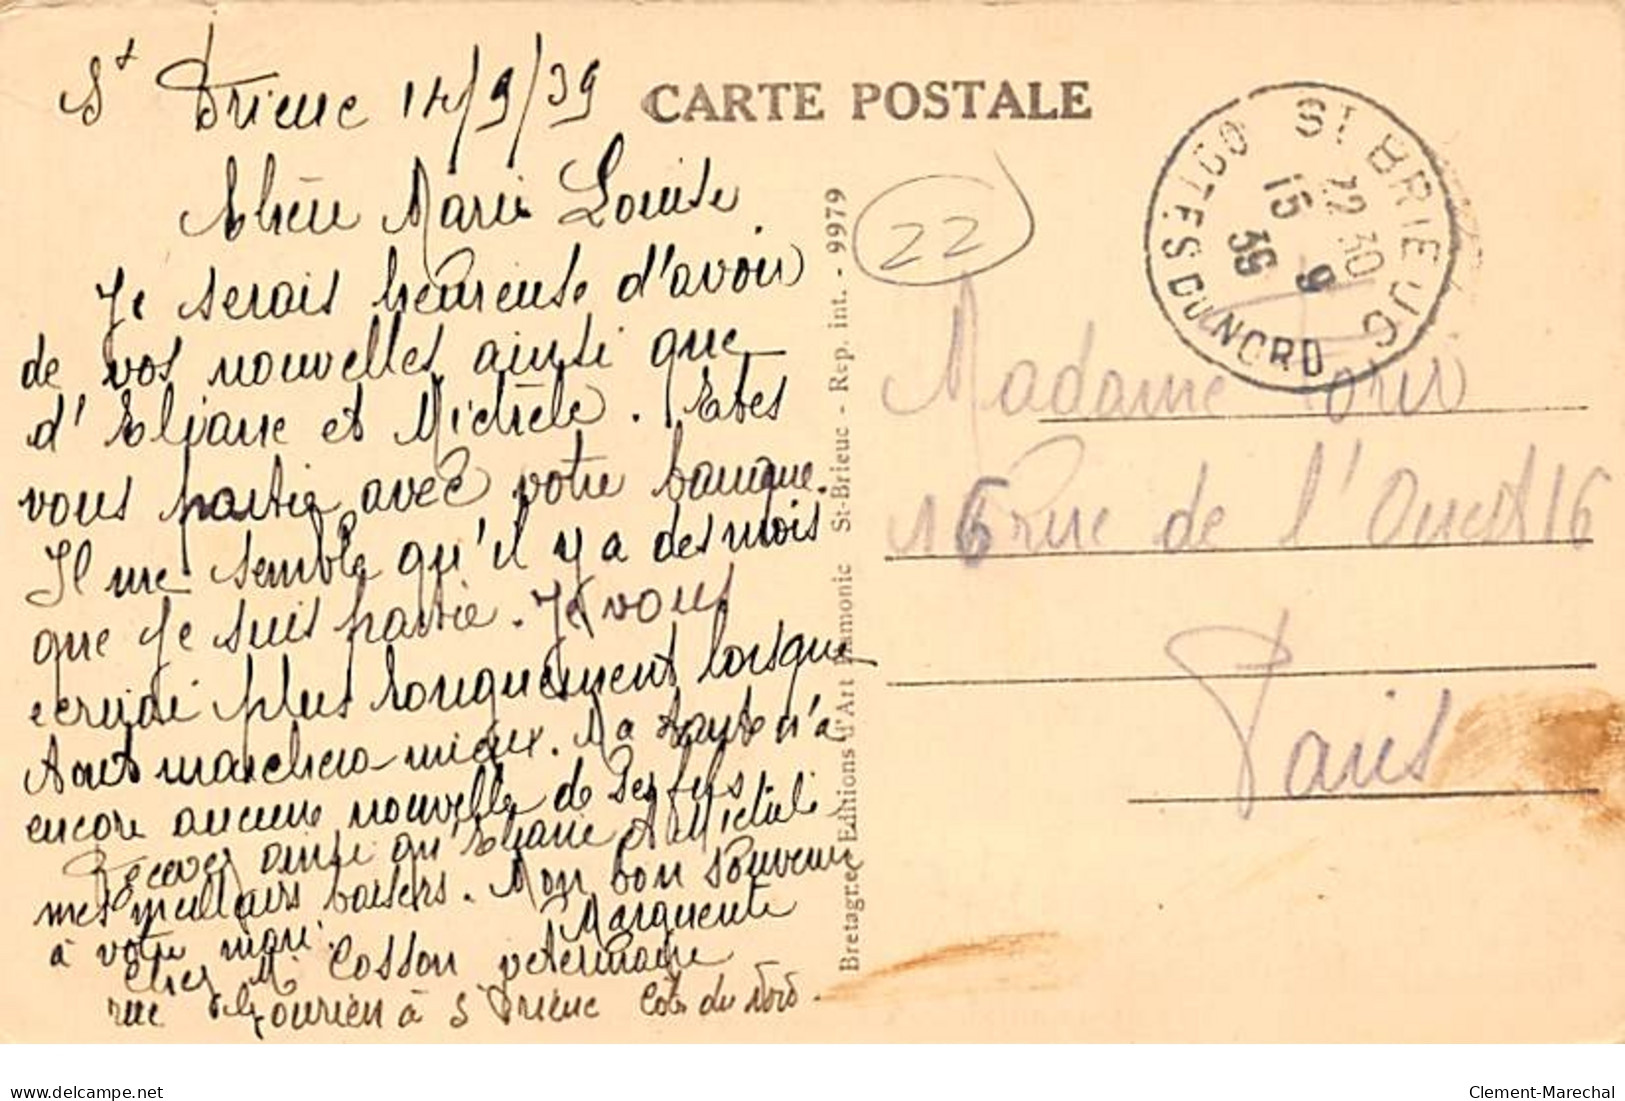 St Brieuc 14/9/39
CARTE POSTALE
Chère Marie Louise
Je serais heureuse d'avoir
de vos nouvelles ainsi que
d'Eliane et Michèle. Etes
vous partie avec votre banque.
Il me semble qu'il y a des mois
que je suis partie. Je vous
ecrirai plus longuement lorsque
tout marchera mieux. Ma tante n'a
encore aucune nouvelle de ses fils
Recevez ainsi qu'Eliane et Michèle
mes meilleurs baisers. Mon bon souvenir
à votre mari. Marguerite
chez M. Cosson veterinaire
rue à St Brieuc Côtes du Nord.
Bretagne Editions d'Art St-Brieuc - Rep. int. - 9979
22
ST BRIEUC
22 30
15 9
39
COTES DU NORD
Madame
16 Rue de l'Ouest 16
Paris
delcampe.net
Clement-Marechal